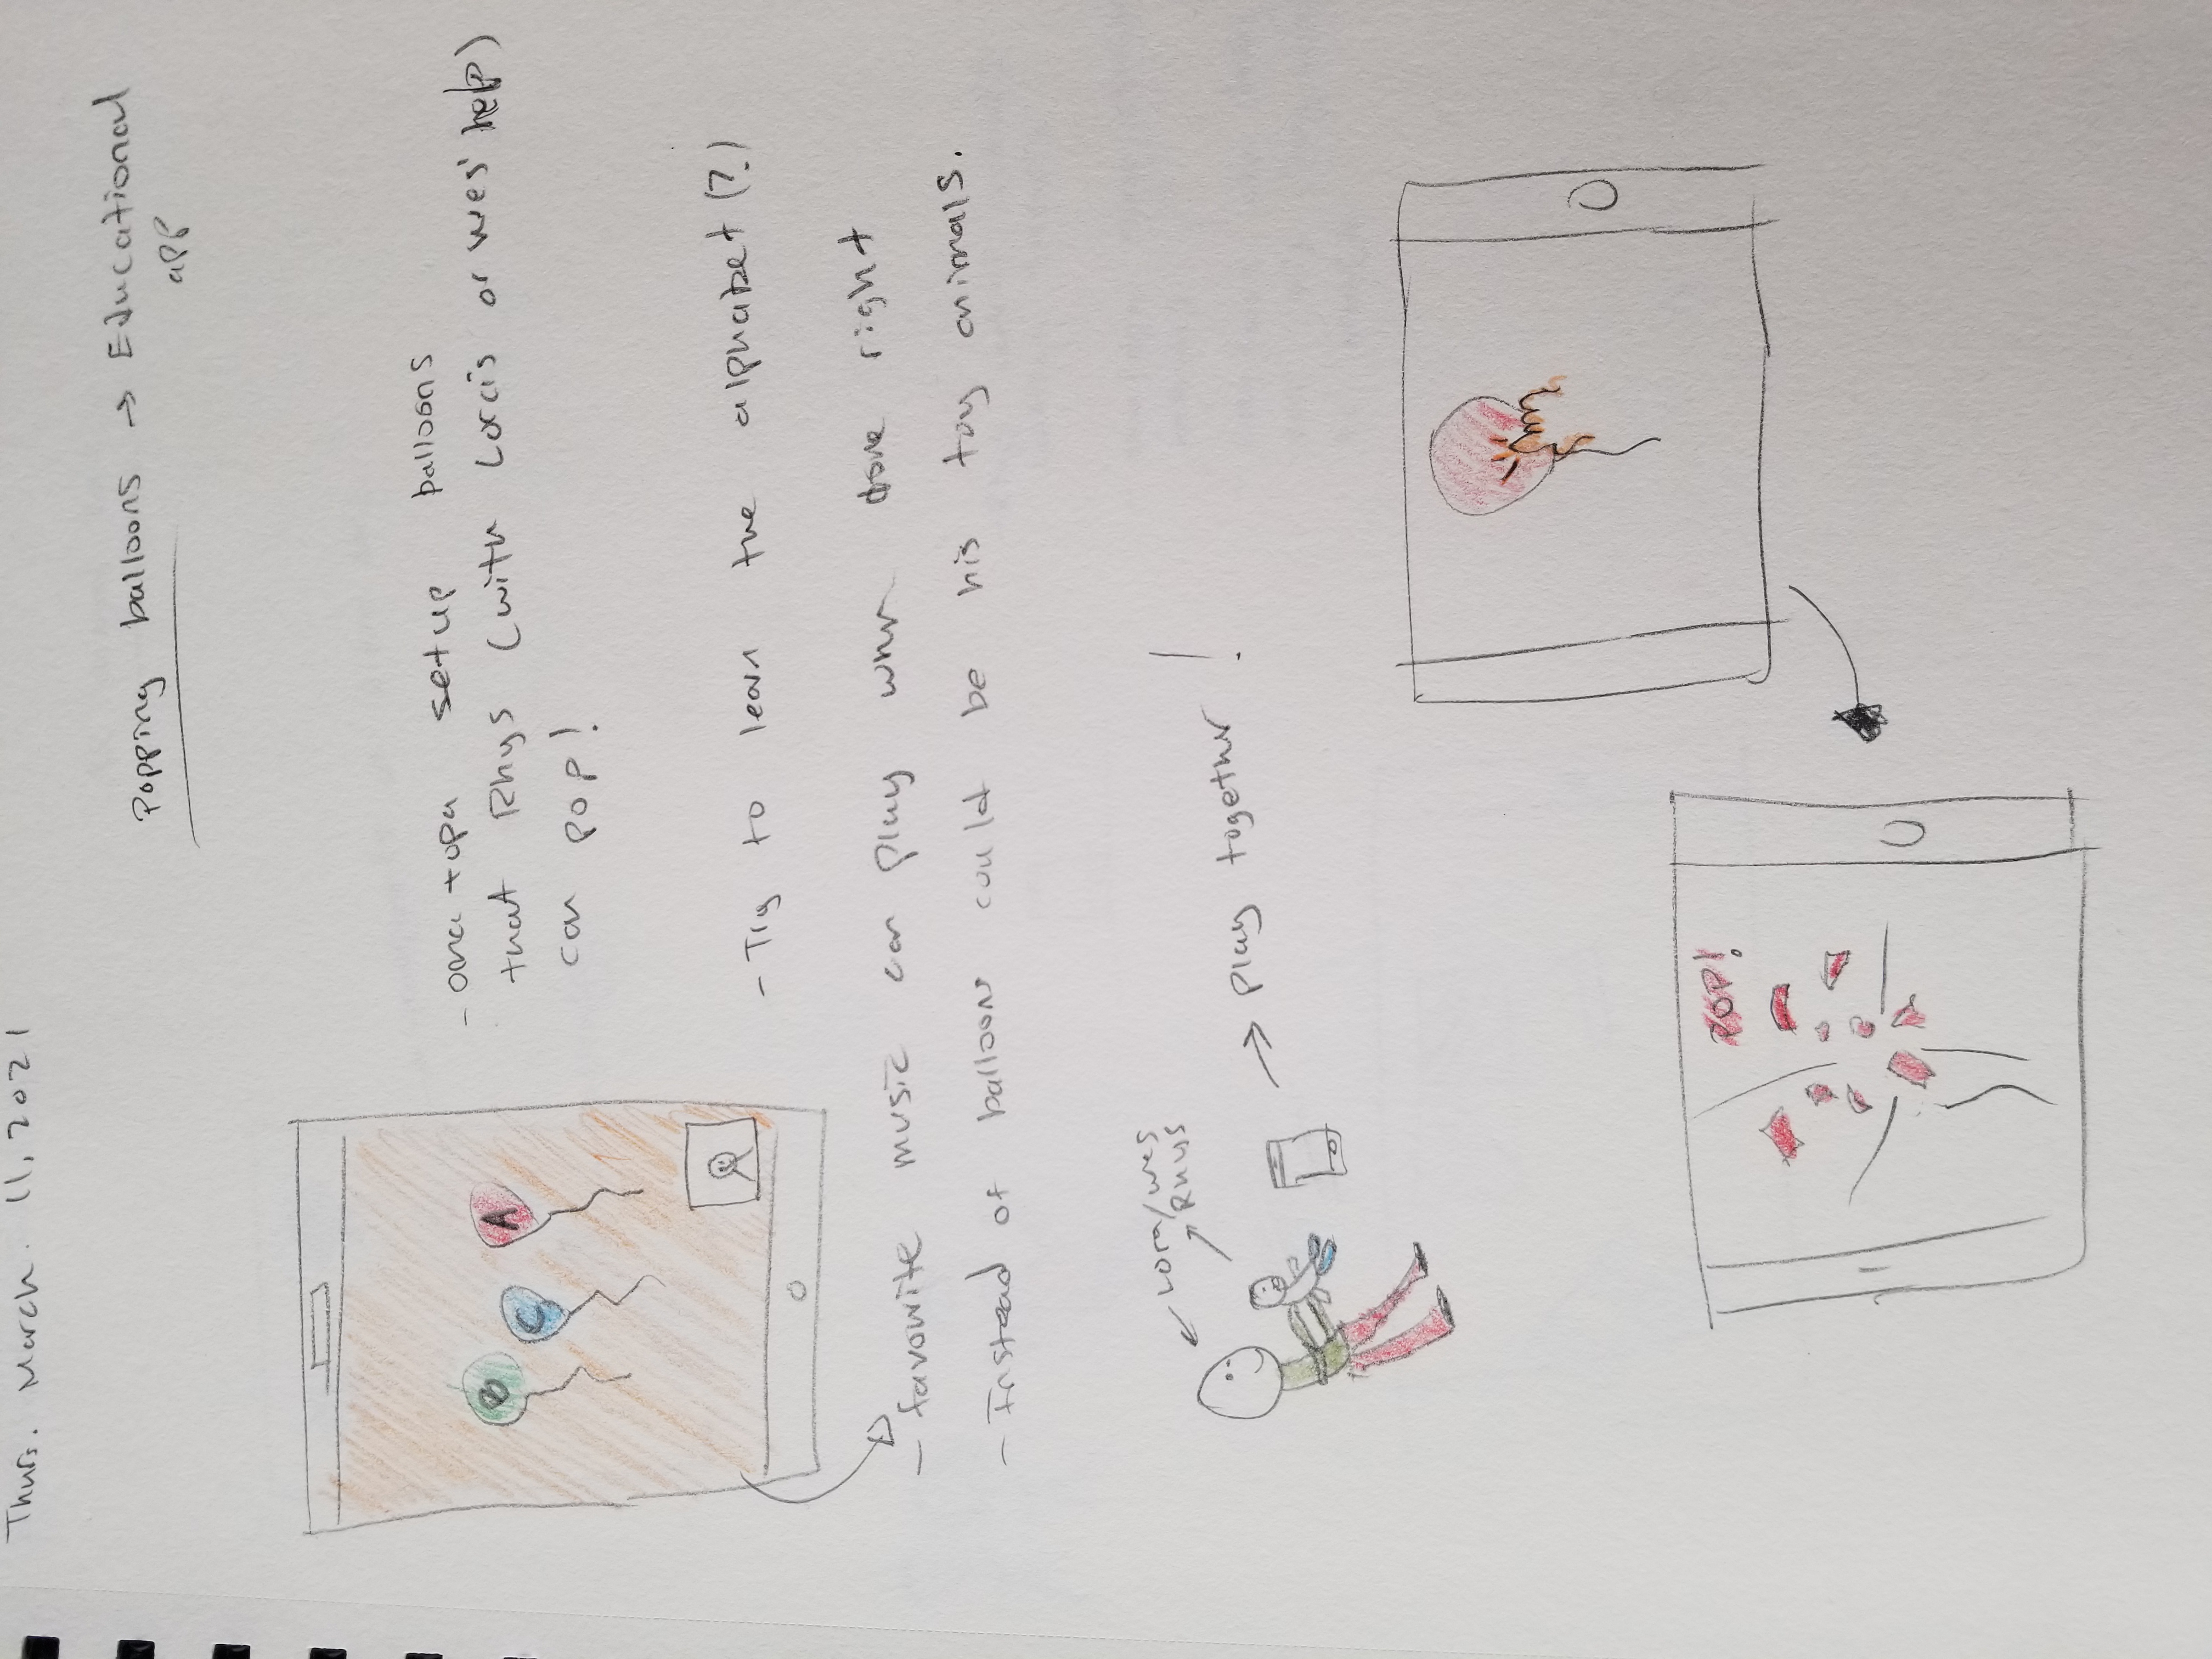 Thurs. March. 11, 2021
Popping balloons → Educational
app
B
C
A
- oma + opa setup balloons
that Rhys (with Lora's or Wes' help)
can pop!
- Try to learn the alphabet (?)
- favourite music can play when done right
- Instead of balloons could be his toy animals.
Lora/Wes
Rhys
→ Play together !
POP!